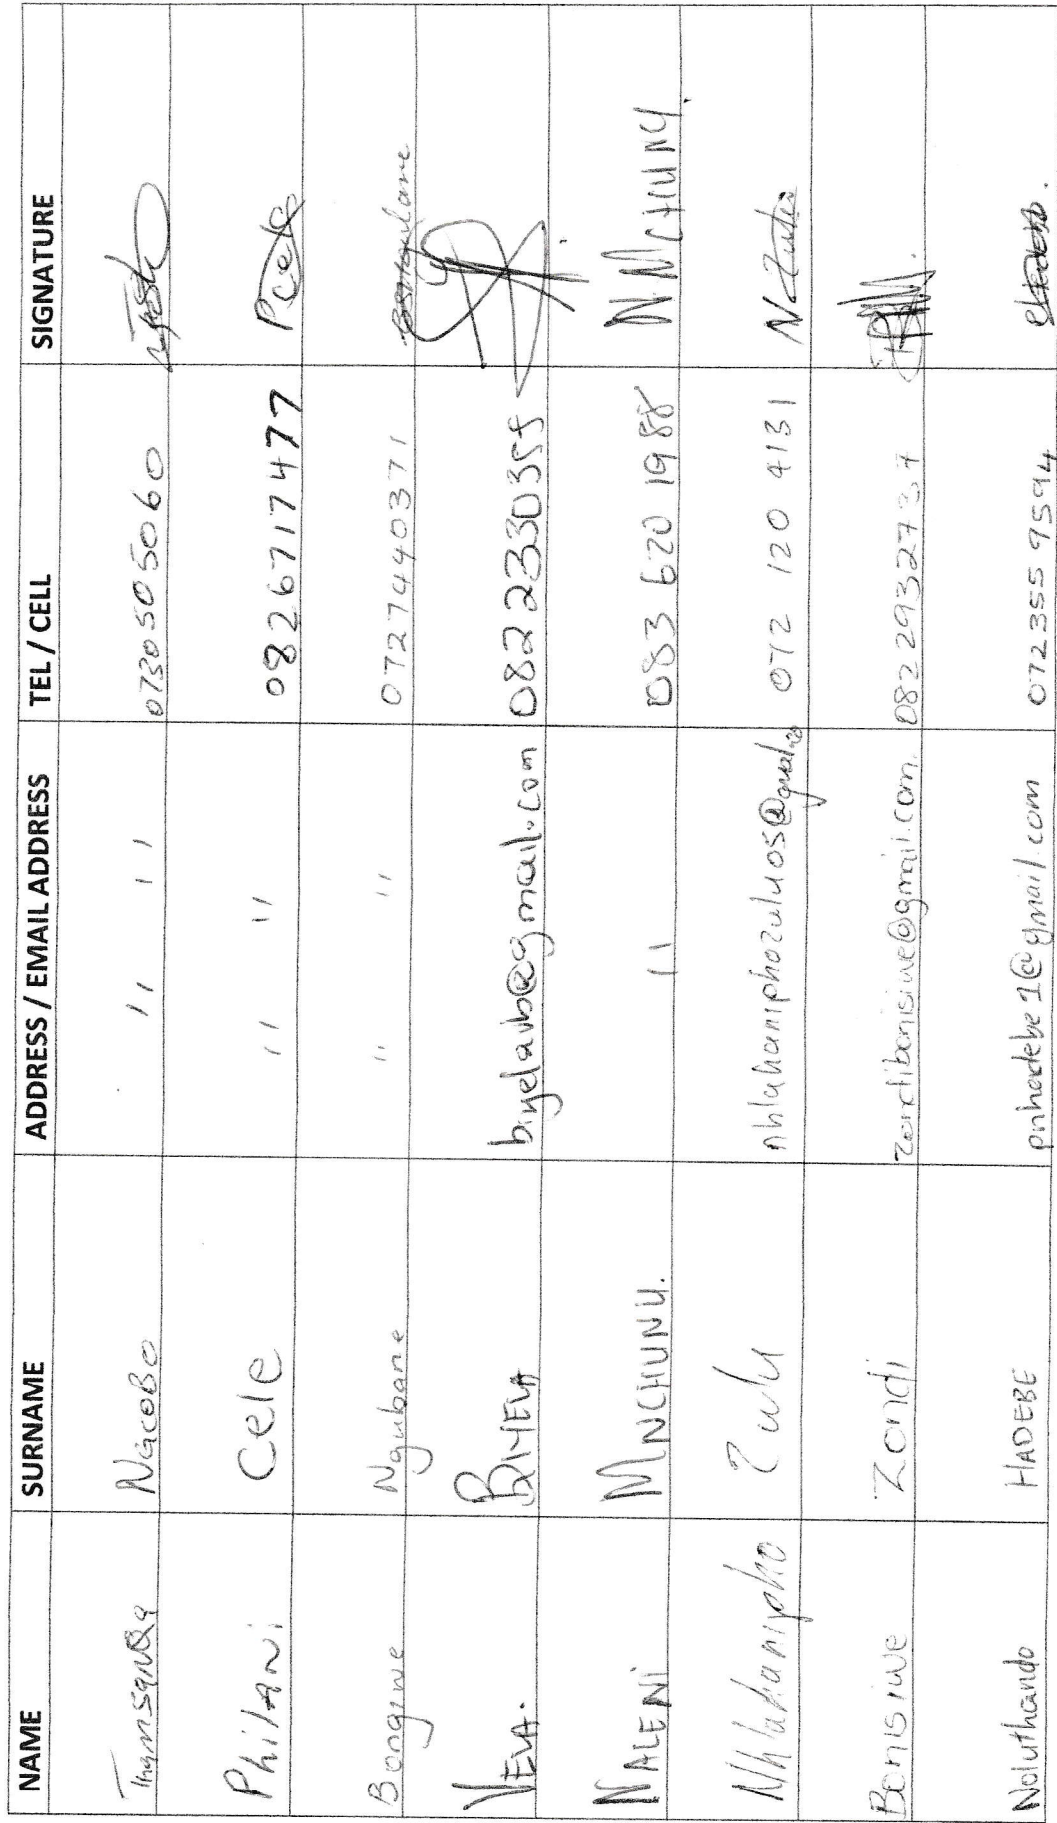 NAME SURNAME ADDRESS / EMAIL ADDRESS TEL / CELL SIGNATURE
ThamsanQa NGCOBO " " 0730505060
PhilANi Cele " " 0826717477 P Cele
Bongiwe Ngubane " " 0727440371
VELA. BIYELA biyelavb@gmail.com 0822330355
NALENI MNCHUNU. " 083 620 1988 N MCHUNU.
Nhlahanipho Zulu nhlahaniphozulu05@gmail 072 120 4131 N Zulu
Bonisiwe Zondi zondibonisiwe@gmail.com. 0822932737
Noluthando HADEBE pnhadebe1@gmail.com 072355 9594